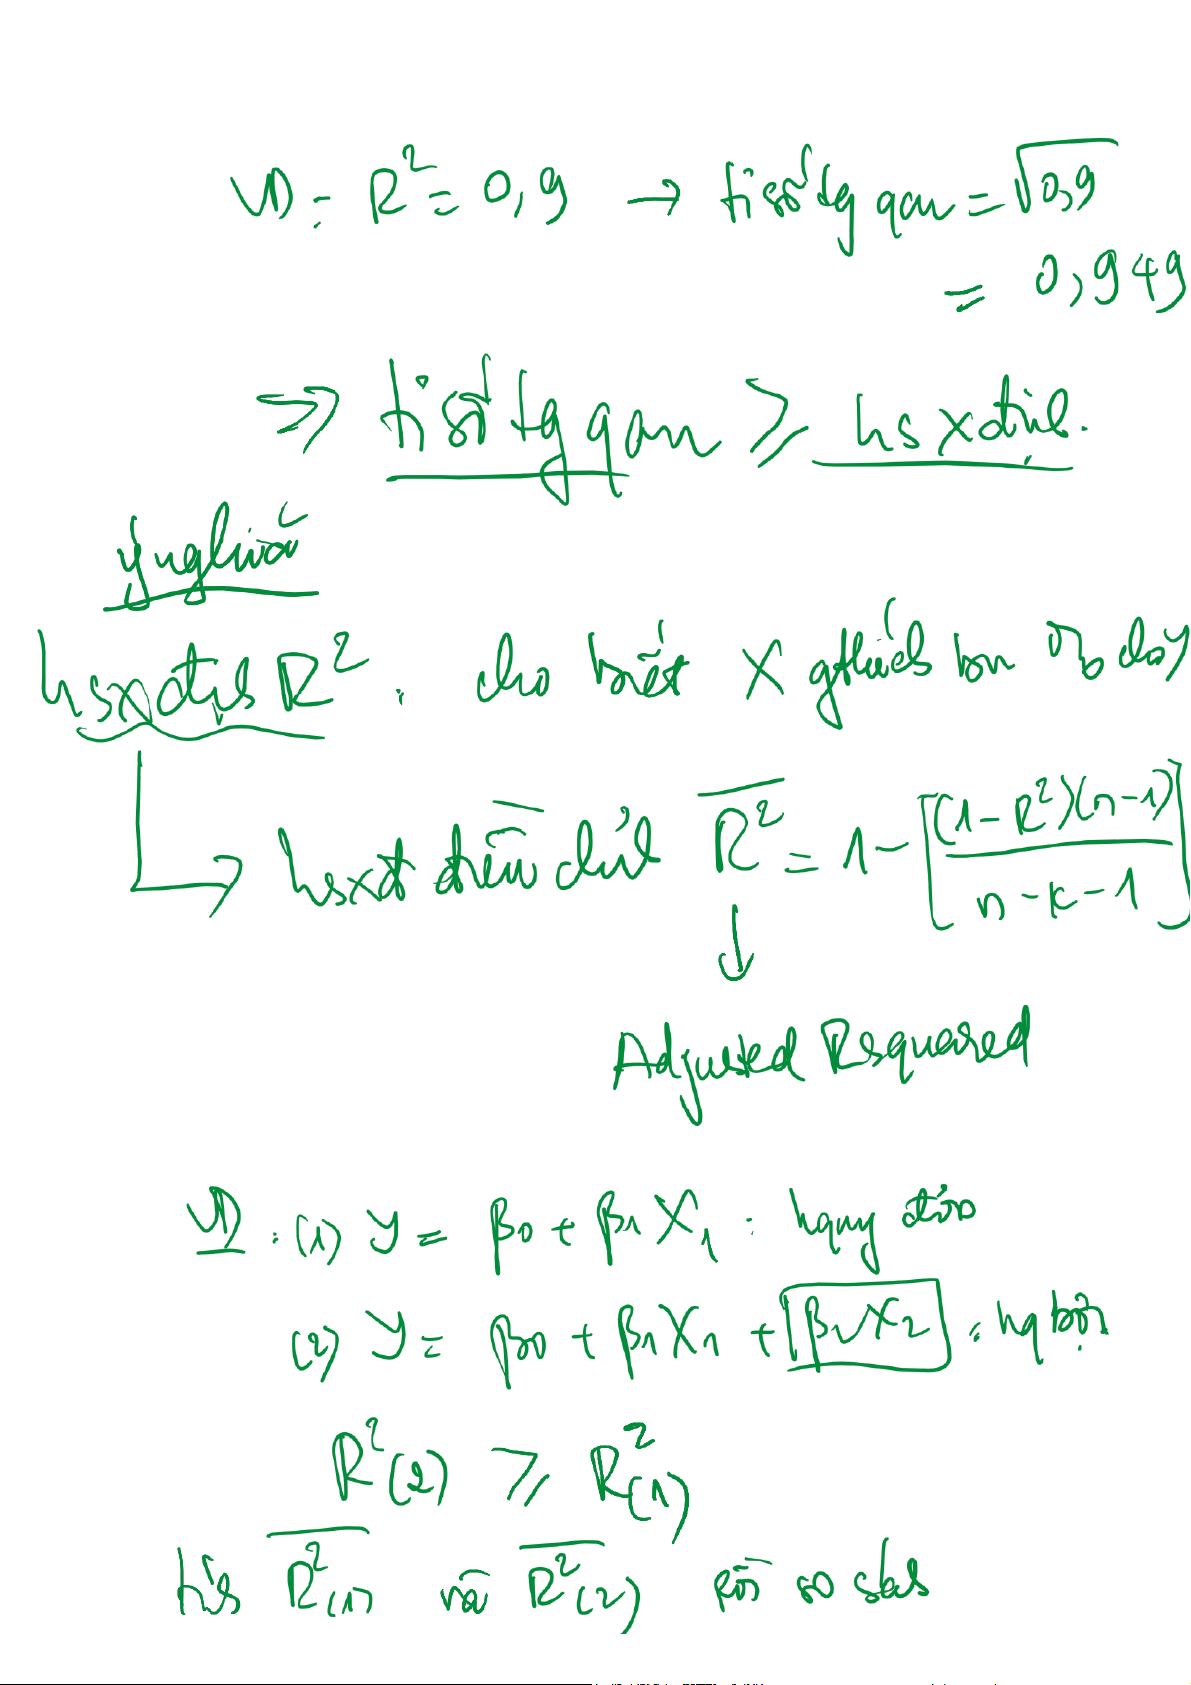 VD: R² = 0,9 → tỉ số tg qan = √0,9
= 0,949
⇒ tỉ số tg qan ≥ hs xđịnh.
ý nghĩa
hsxđịnh R²: cho biết X gthích bn % cho Y
↳ hsxđ điều chỉnh R̄² = 1 - [(1-R²)(n-1) / (n-k-1)]
↓
Adjusted Rsquared
VD: (1) Y = β0 + β1 X1 : hquy đơn
(2) Y = β0 + β1X1 + β2X2 : hq bội
R²(2) ≥ R²(1)
tính R̄²(1) và R̄²(2) rồi so sánh